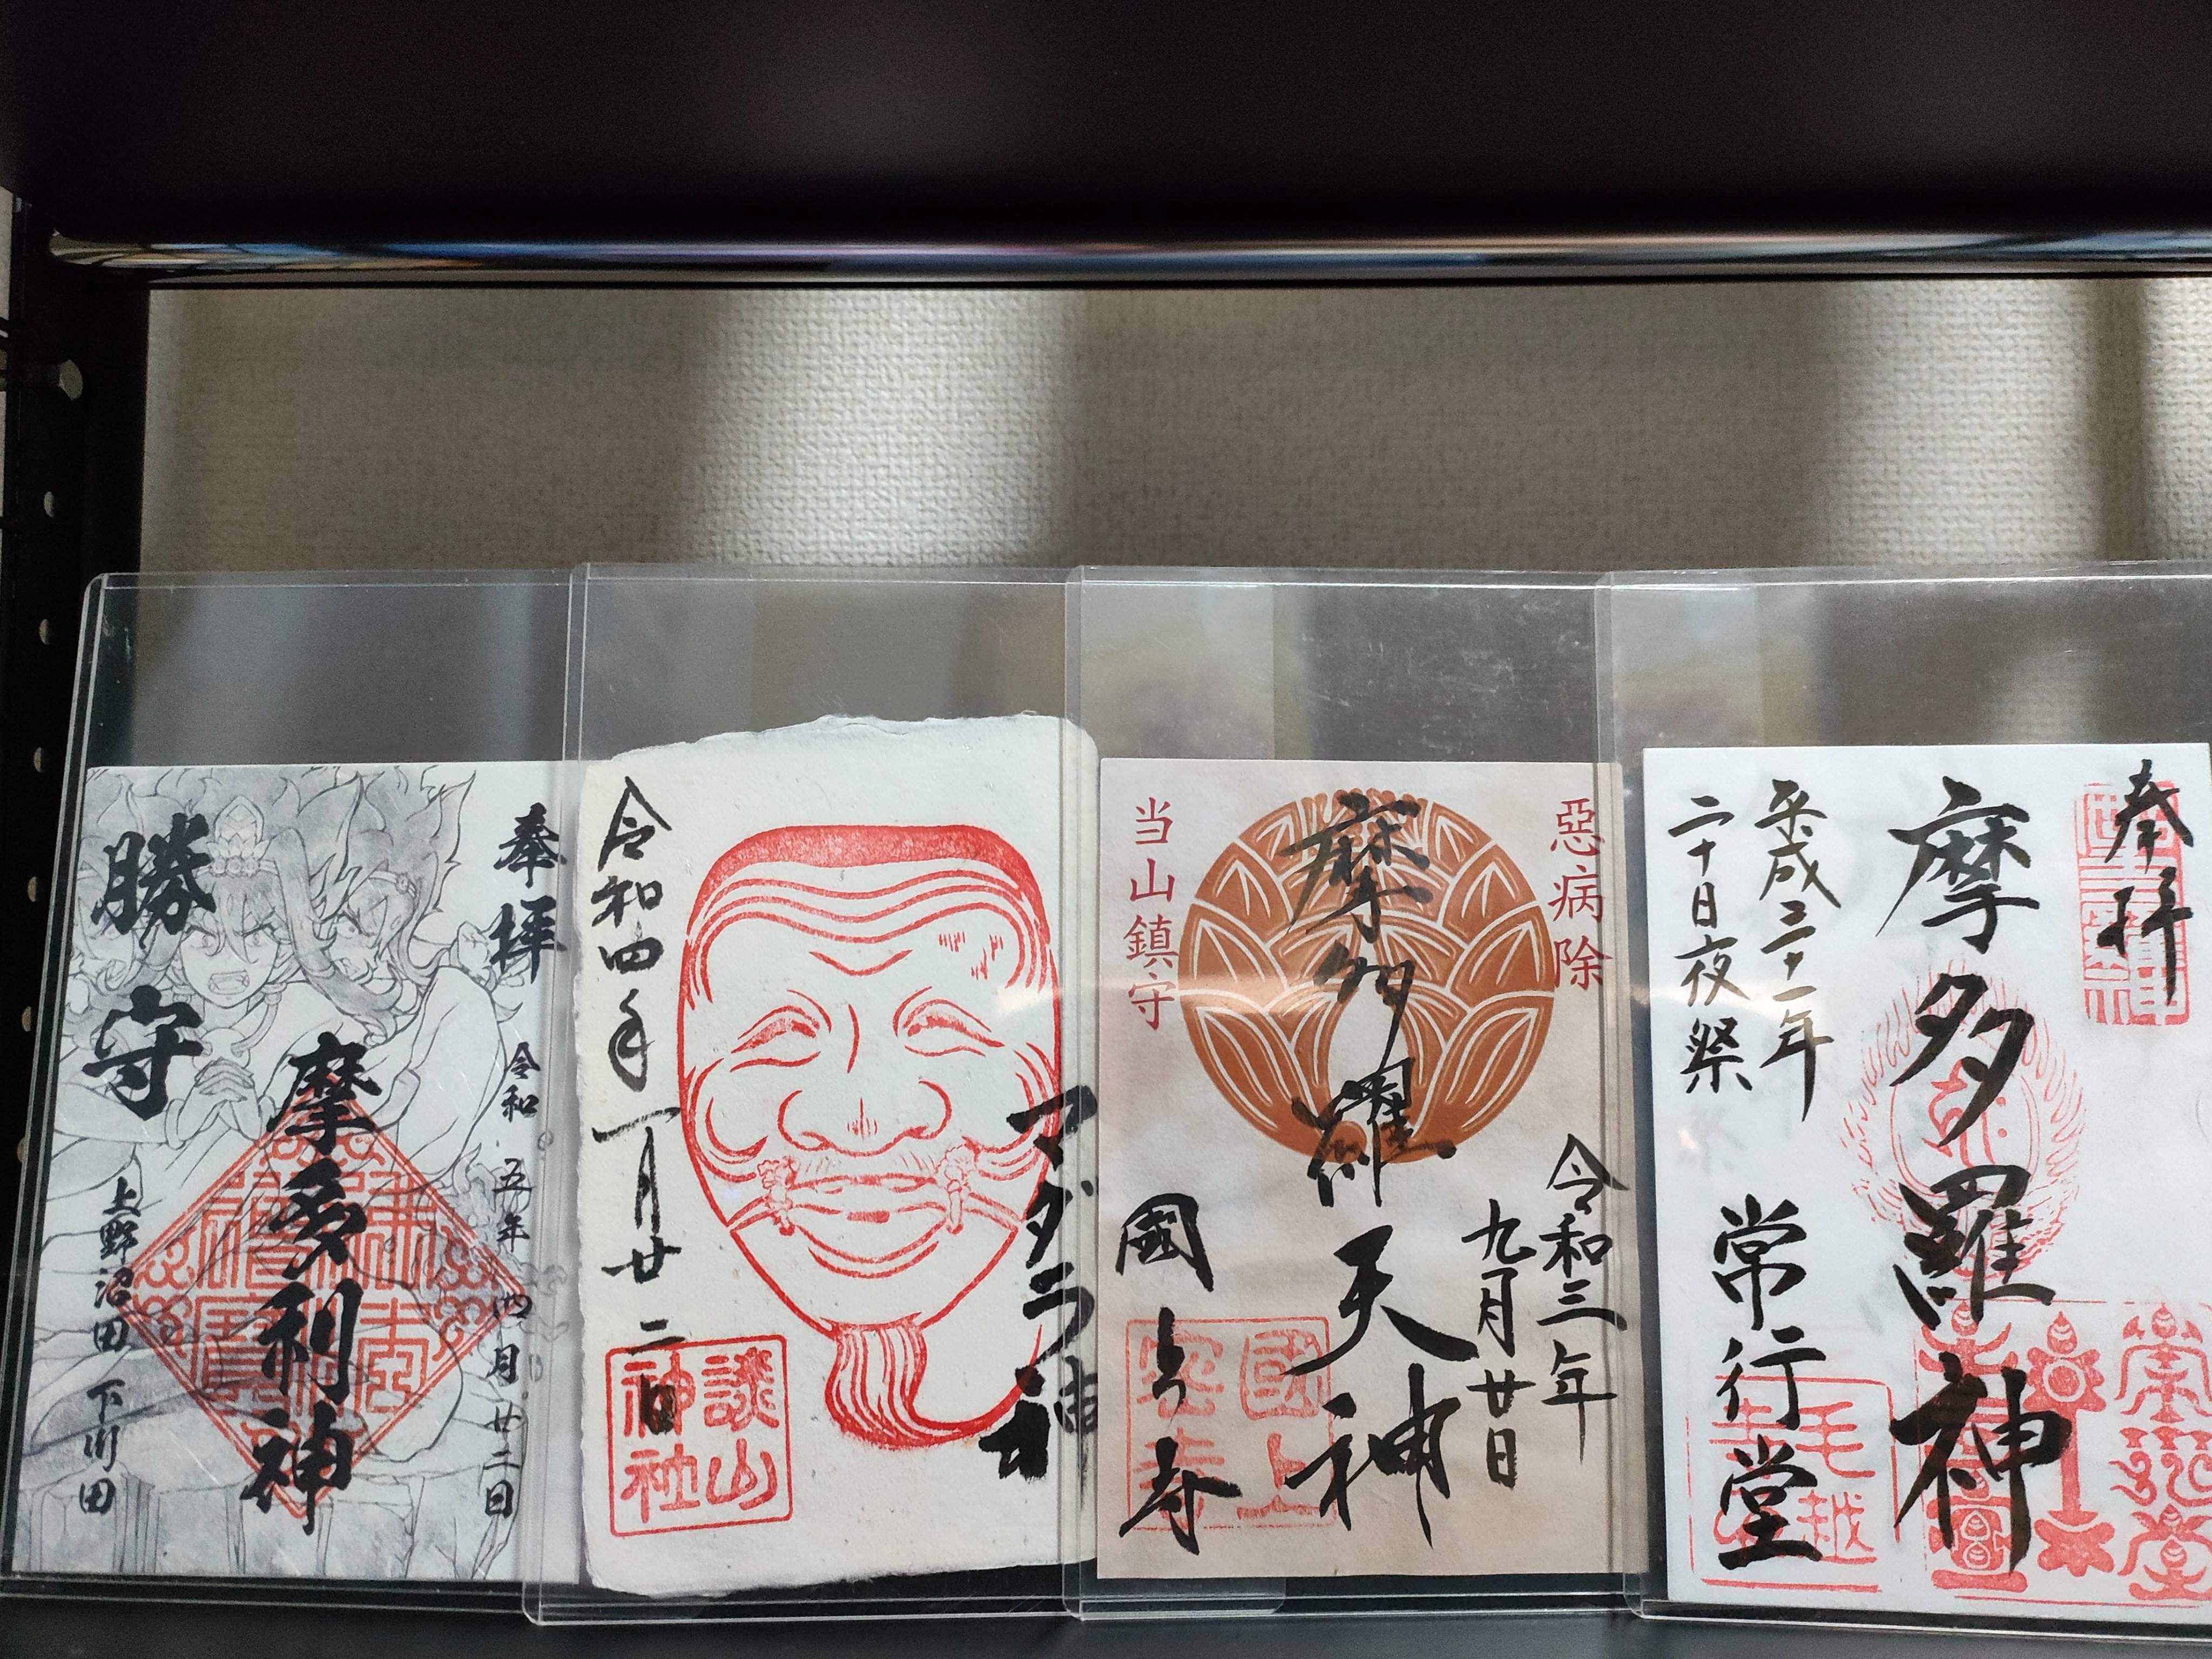 奉拝
令和五年四月廿二日
摩多利神
勝守
上野沼田 下川田
マダラ神
令和四年一月廿二日
談山
神社
惡病除
令和三年
九月廿日
摩多羅天神
当山鎮守
國上寺
國上
奉拝
摩多羅神
平成三十一年
二十日夜祭
常行堂
毛越